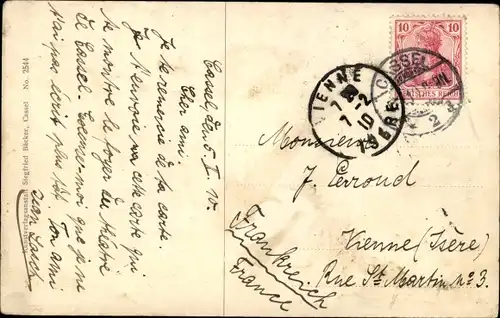 Cassel, den 5. II. 10.
Cher ami.
Je te remercie de la carte
Je t'envoie cette carte qui
te montre le foyer du théâtre
de Cassel. Excuse-moi que je ne
t'ai pas écrit plus tôt. Ton ami
Kunstverlagsanstalt Siegfried Bäcker, Cassel No. 2544
10 10
DEUTSCHES REICH
CASSEL
VIENNE
7 2
10
ISERE
Monsieur
J. Perroud
Vienne (Isère)
Rue St Martin No 3.
Frankreich
France